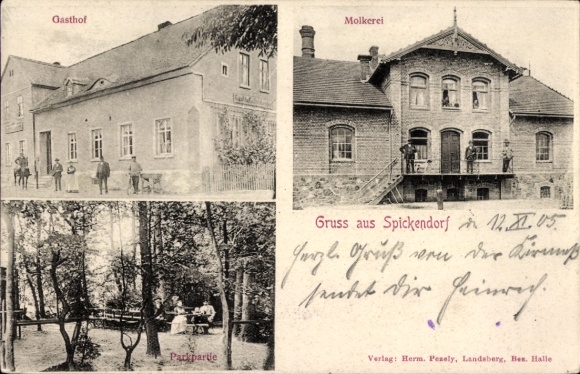 Gasthof
Molkerei
Gruss aus Spickendorf
d. 12. XI. 05.
Herzl. Gruß von der Kirmeß
sendet Dir Heinrich.
Parkpartie
Verlag: Herm. Pezely, Landsberg, Bez. Halle